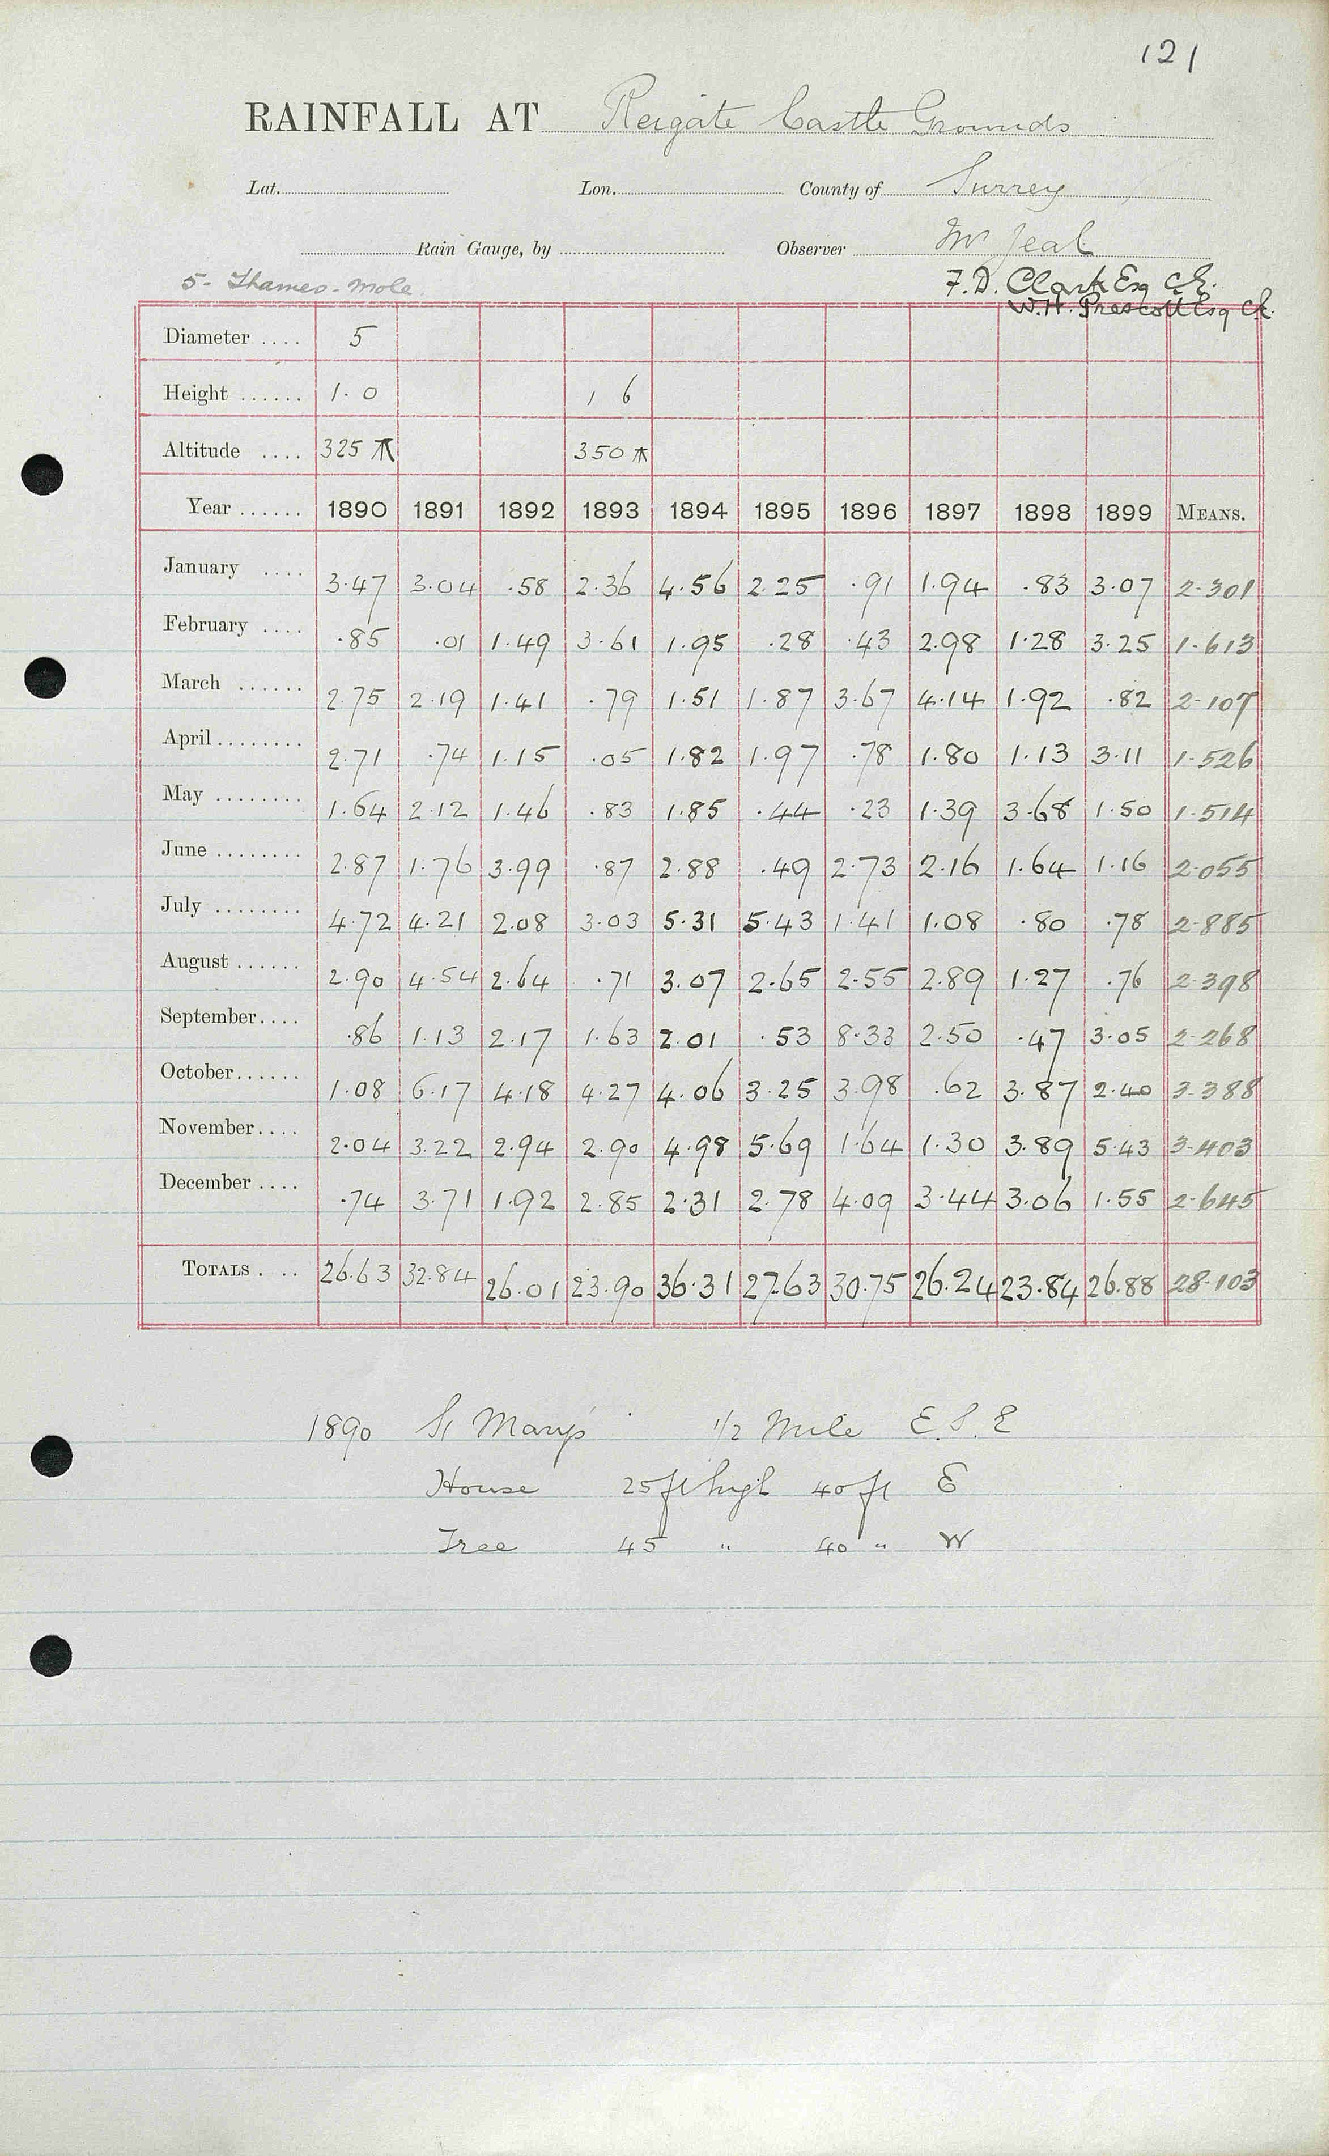 121
RAINFALL AT Reigate Castle Grounds
Lat. Lon. County of Surrey
Rain Gauge, by Observer Mr Jeal
5- Thames-Mole. F.D. Clark Esq C.E.
W.H. Prescott Esq CE.
Diameter .... 5
Height ...... 1.0 1 6
Altitude .... 325 350
Year ...... 1890 1891 1892 1893 1894 1895 1896 1897 1898 1899 MEANS.
January .... 3.47 3.04 .58 2.36 4.56 2.25 .91 1.94 .83 3.07 2.301
February .... .85 .01 1.49 3.61 1.95 .28 .43 2.98 1.28 3.25 1.613
March ...... 2.75 2.19 1.41 .79 1.51 1.87 3.67 4.14 1.92 .82 2.107
April ........ 2.71 .74 1.15 .05 1.82 1.97 .78 1.80 1.13 3.11 1.526
May ........ 1.64 2.12 1.46 .83 1.85 .44 .23 1.39 3.68 1.50 1.514
June ........ 2.87 1.76 3.99 .87 2.88 .49 2.73 2.16 1.64 1.16 2.055
July ........ 4.72 4.21 2.08 3.03 5.31 5.43 1.41 1.08 .80 .78 2.885
August ...... 2.90 4.54 2.64 .71 3.07 2.65 2.55 2.89 1.27 .76 2.398
September .... .86 1.13 2.17 1.63 2.01 .53 8.33 2.50 .47 3.05 2.268
October ...... 1.08 6.17 4.18 4.27 4.06 3.25 3.98 .62 3.87 2.40 3.388
November .... 2.04 3.22 2.94 2.90 4.98 5.69 1.64 1.30 3.89 5.43 3.403
December .... .74 3.71 1.92 2.85 2.31 2.78 4.09 3.44 3.06 1.55 2.645
TOTALS .... 26.63 32.84 26.01 23.90 36.31 27.63 30.75 26.24 23.84 26.88 28.103
1890 St Mary's 1/2 Mile E.S.E
House 25 ft high 40 ft E
Tree 45 " 40 " W